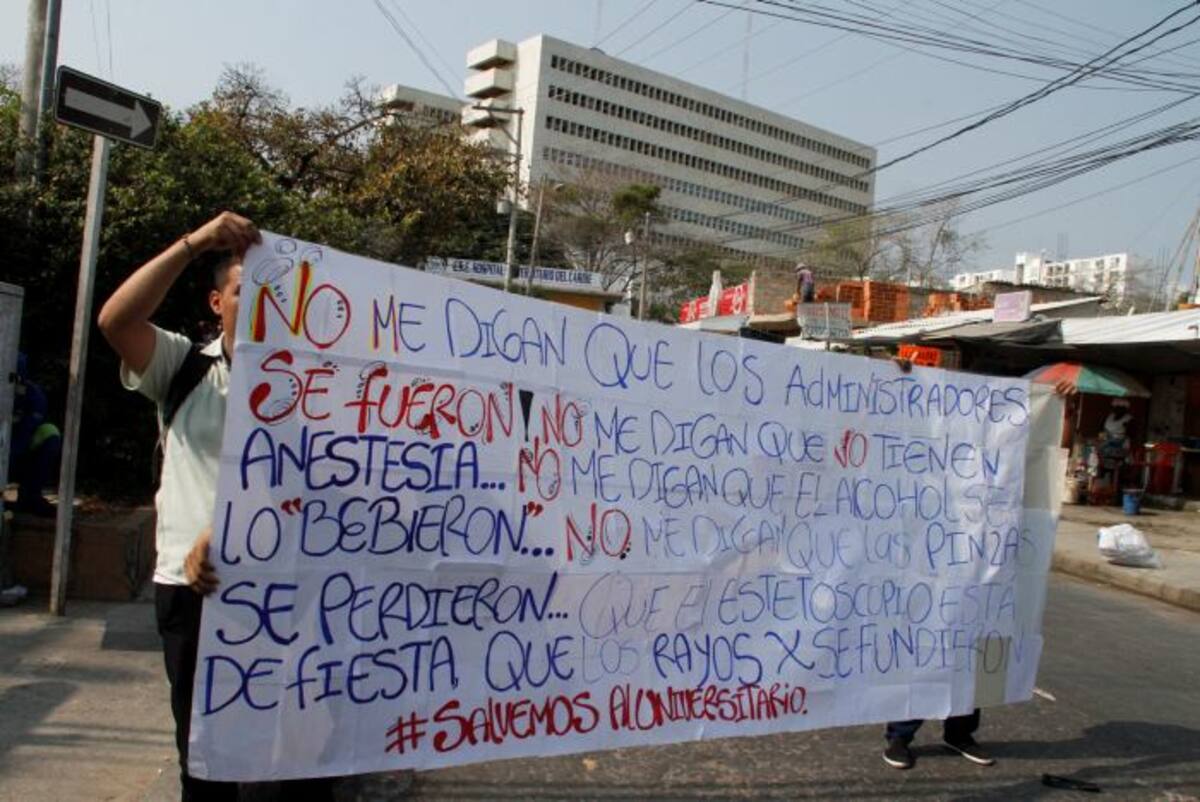 E.S.E. HOSPITAL UNIVERSITARIO DEL CARIBE
NO ME DIGAN QUE LOS ADMINISTRADORES
SE FUERON! NO ME DIGAN QUE NO TIENEN
ANESTESIA... NO ME DIGAN QUE EL ALCOHOL SE
LO "BEBIERON"... NO ME DIGAN QUE LAS PINZAS
SE PERDIERON... QUE EL ESTETOSCOPIO ESTA
DE FIESTA, QUE LOS RAYOS X SE FUNDIERON
#SALVEMOS AL UNIVERSITARIO.